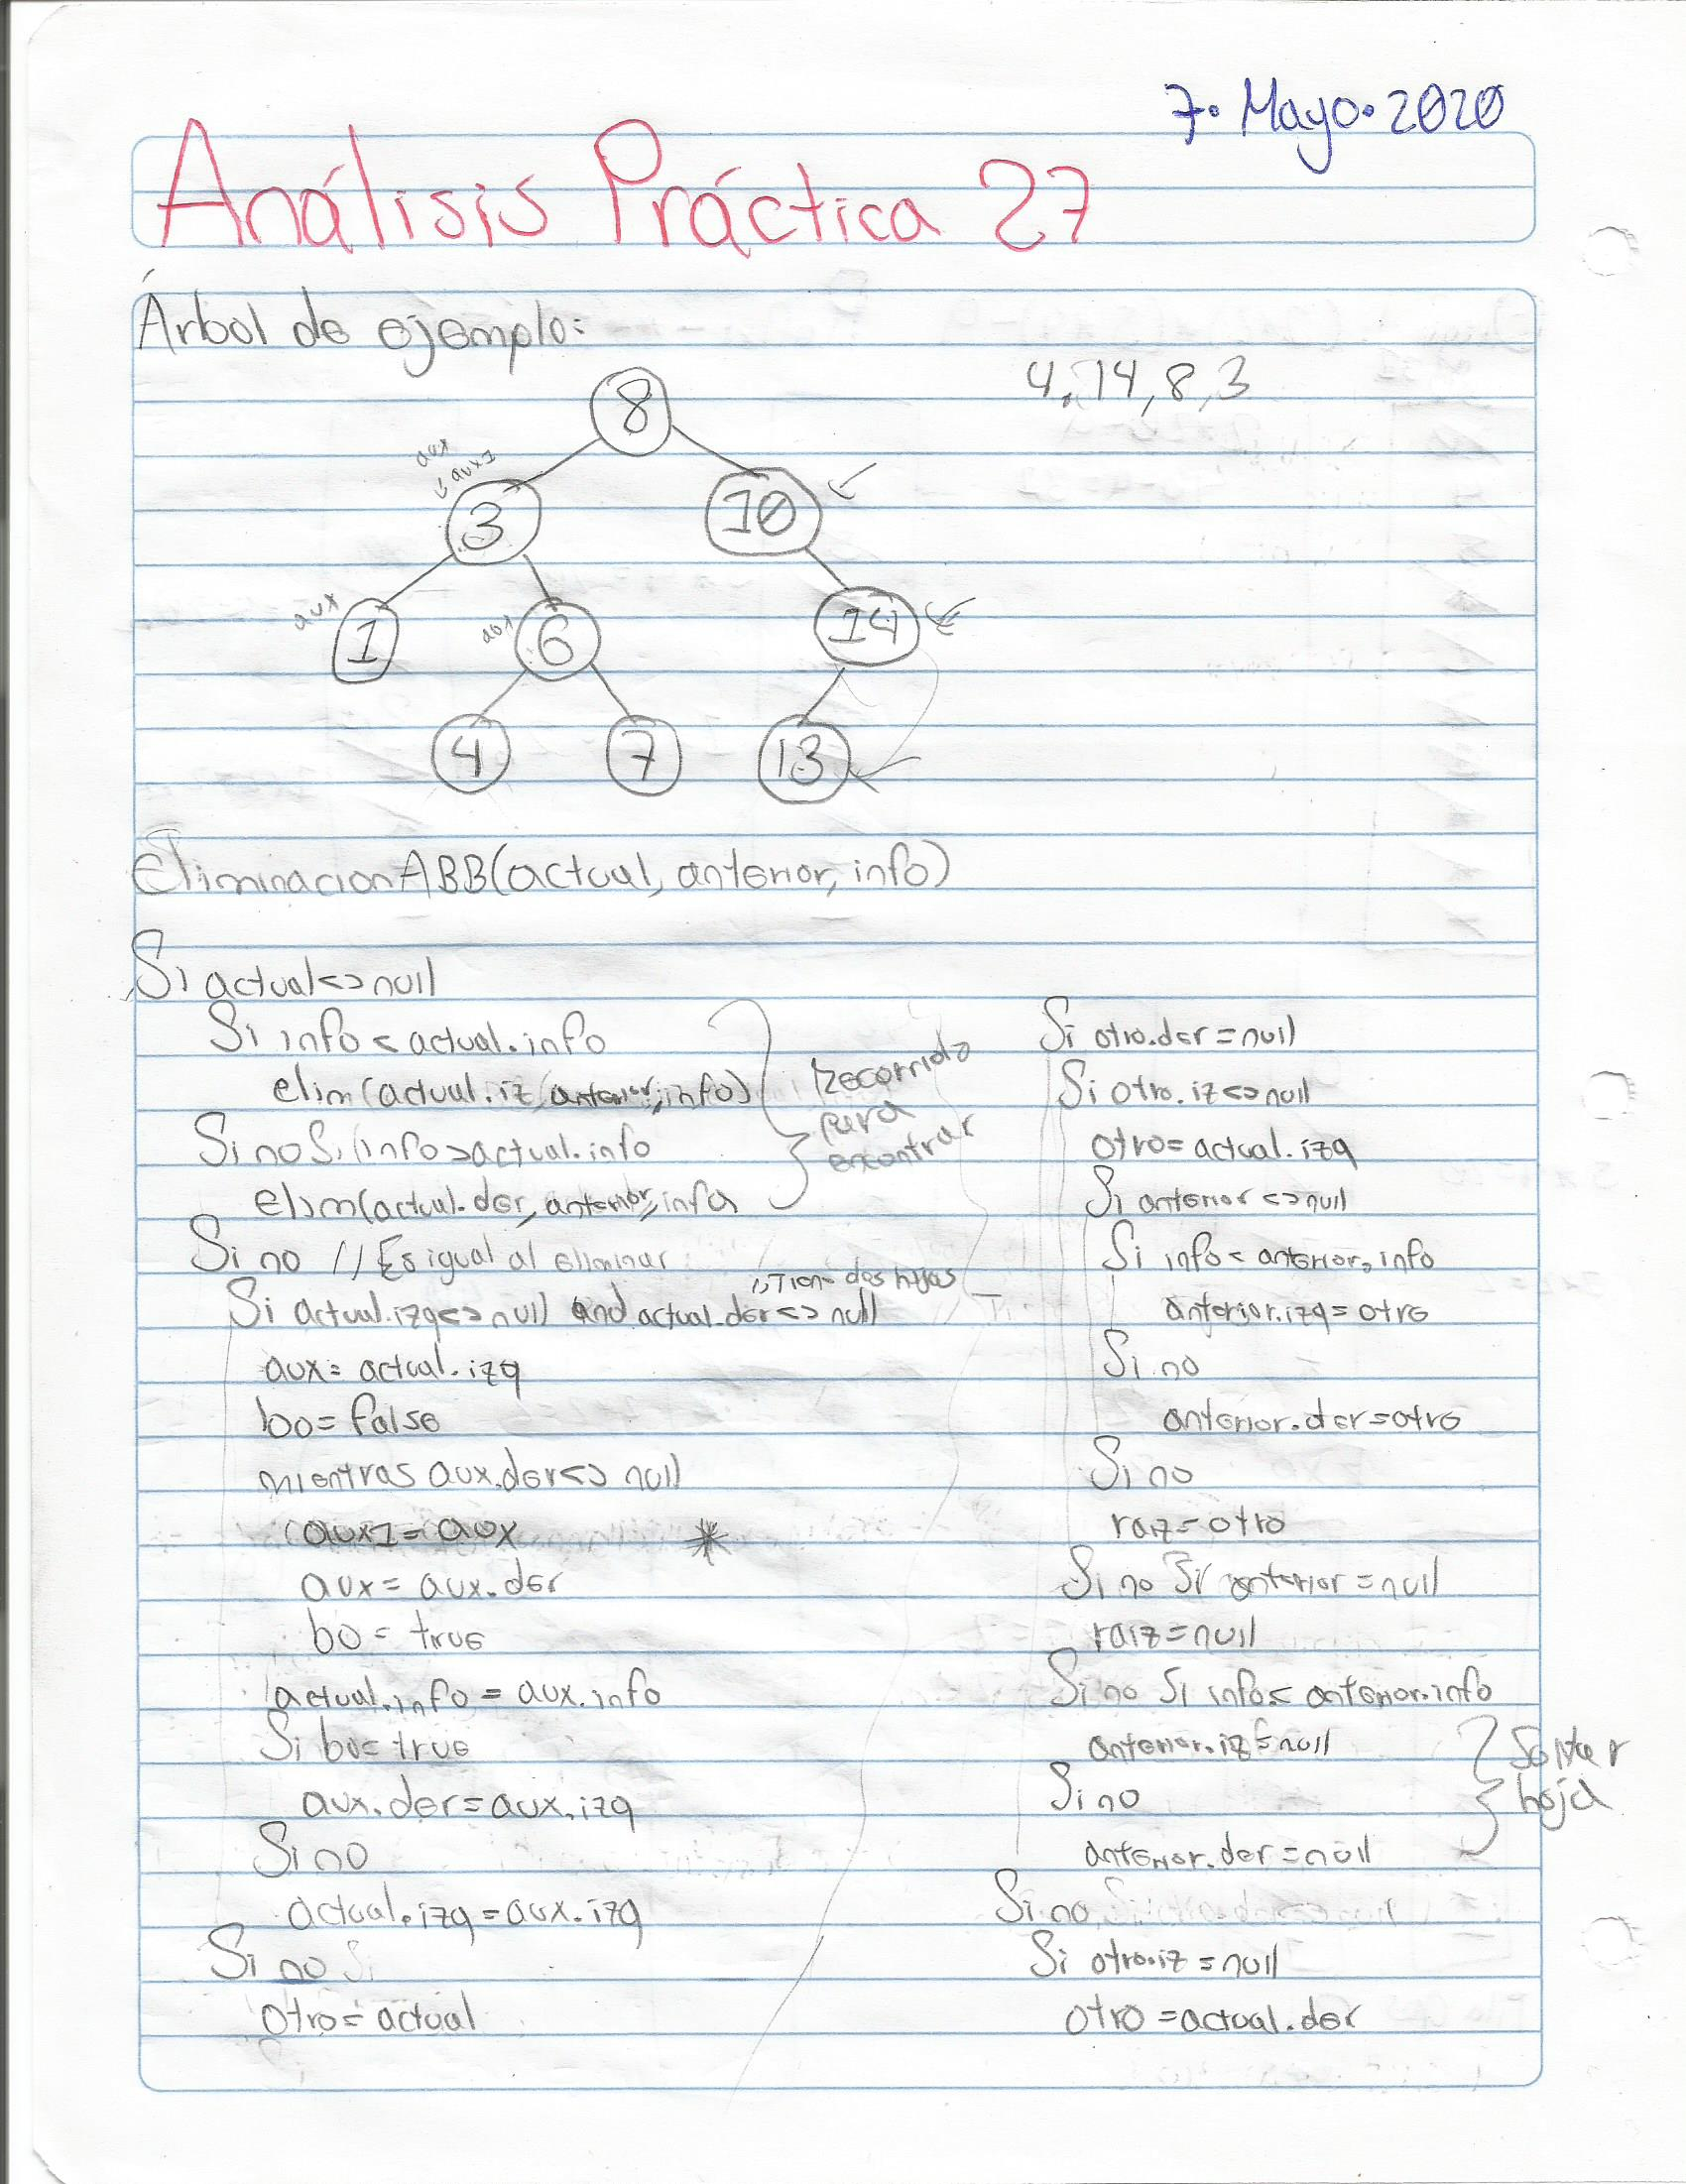 7. Mayo. 2020
Análisis Práctica 27
Árbol de ejemplo:
4, 14, 8, 3
8
aux
aux1
3
10
aux
1
aux
6
14
4
7
13
EliminacionABB(actual, anterior, info)
Si actual<>null
Si info < actual.info
elim(actual.iz, anterior, info)
Si no Si (info > actual.info
elim(actual.der, anterior, info)
Recorrido
para
encontrar
Si no // Es igual al eliminar
// Tiene dos hijos
Si actual.izq<> null and actual.der<> null
aux= actual.izq
bo= false
mientras aux.der<> null
aux1= aux *
aux= aux.der
bo= true
actual.info = aux.info
Si bo= true
aux.der=aux.izq
Si no
actual.izq =aux.izq
Si no Si
otro= actual
Si otro.der =null
Si otro.iz<>null
otro= actual.izq
Si anterior <>null
Si info< anterior.info
anterior.izq= otro
Si no
anterior.der=otro
Si no
raiz=otro
Si no Si anterior=null
raiz=null
Si no Si info< anterior.info
anterior.iz=null
Si no
anterior.der=null
Soltar
hoja
Si no
Si otro.iz =null
otro =actual.der